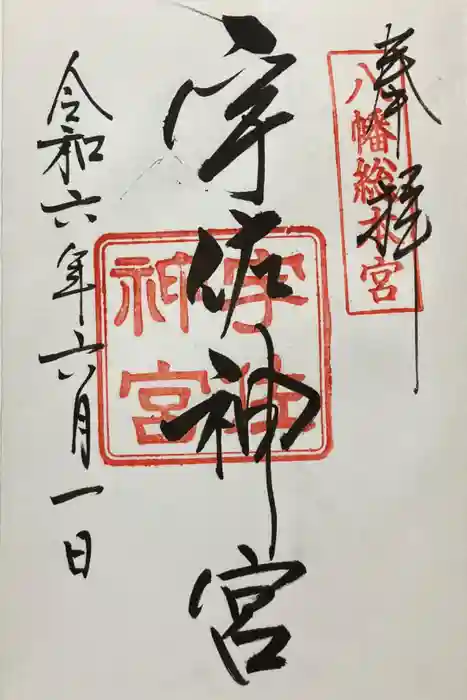 奉拝
八幡総本宮
宇佐神宮
宇佐
神宮
令和六年六月一日